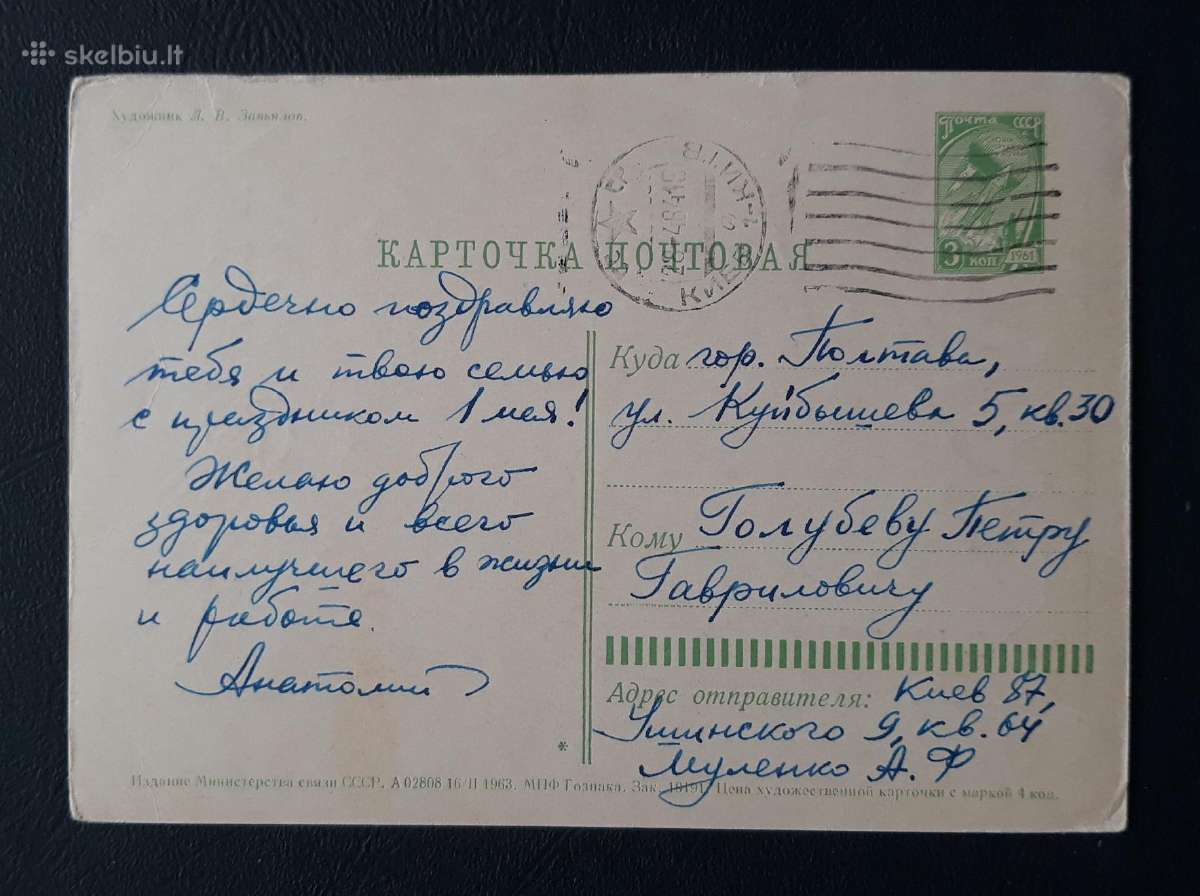 skelbiu.lt
Художник Л. В. Завьялов.
ПОЧТА СССР
3 КОП 1961
КИЕВ
КАРТОЧКА ПОЧТОВАЯ
Сердечно поздравляю
тебя и твою семью
с праздником 1 мая!
Желаю доброго
здоровья и всего
наилучшего в жизни
и работе.
Анатолий
Куда гор. Полтава,
ул. Куйбышева 5, кв. 30
Кому Голубеву Петру
Гавриловичу
Адрес отправителя: Киев 87,
Ушинского 9, кв. 64
Муленко А. Ф
*
Издание Министерства связи СССР. А 02808 16/II 1963. МПФ Гознака. Зак. Цена художественной карточки с маркой 4 коп.